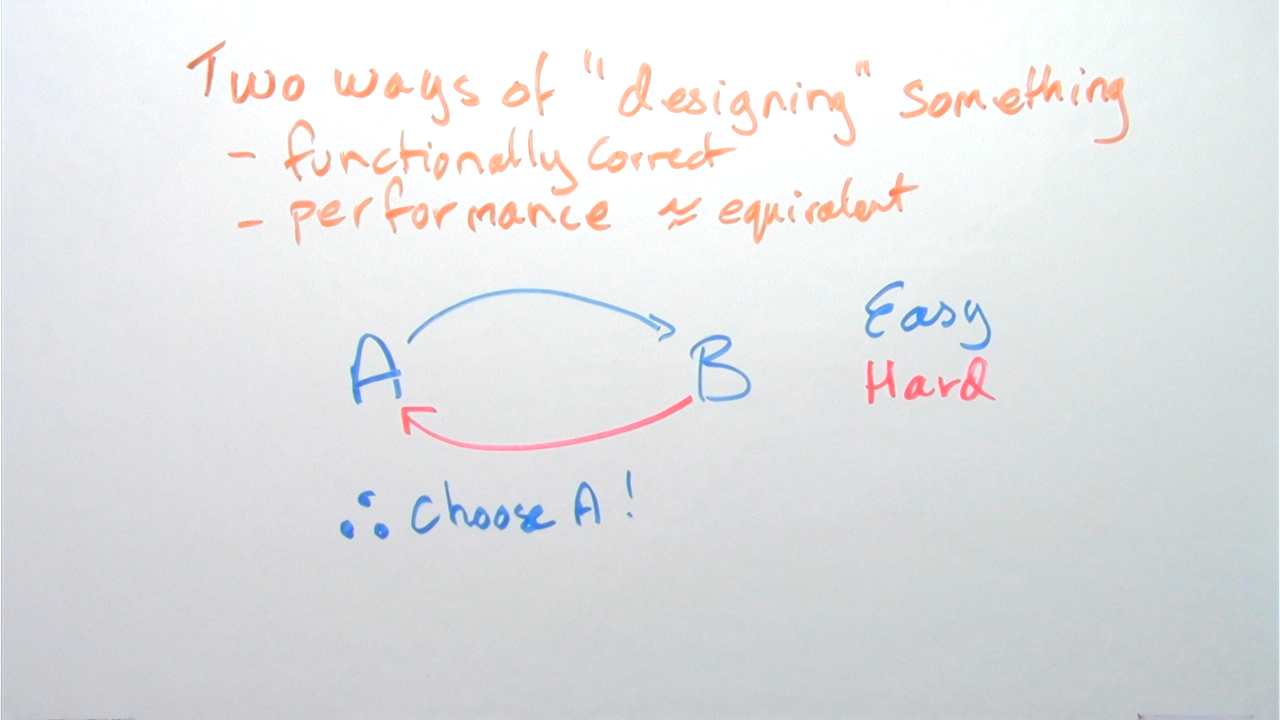 Two ways of "designing" something
- functionally correct
- performance ≈ equivalent
Easy
A B
Hard
∴ Choose A!